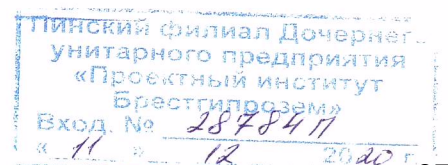 Пинский филиал Дочернег
унитарного предприятия
«Проектный институт
Брестгипрозем»
Вход. № 28784П
« 11 » 12 2020 г.